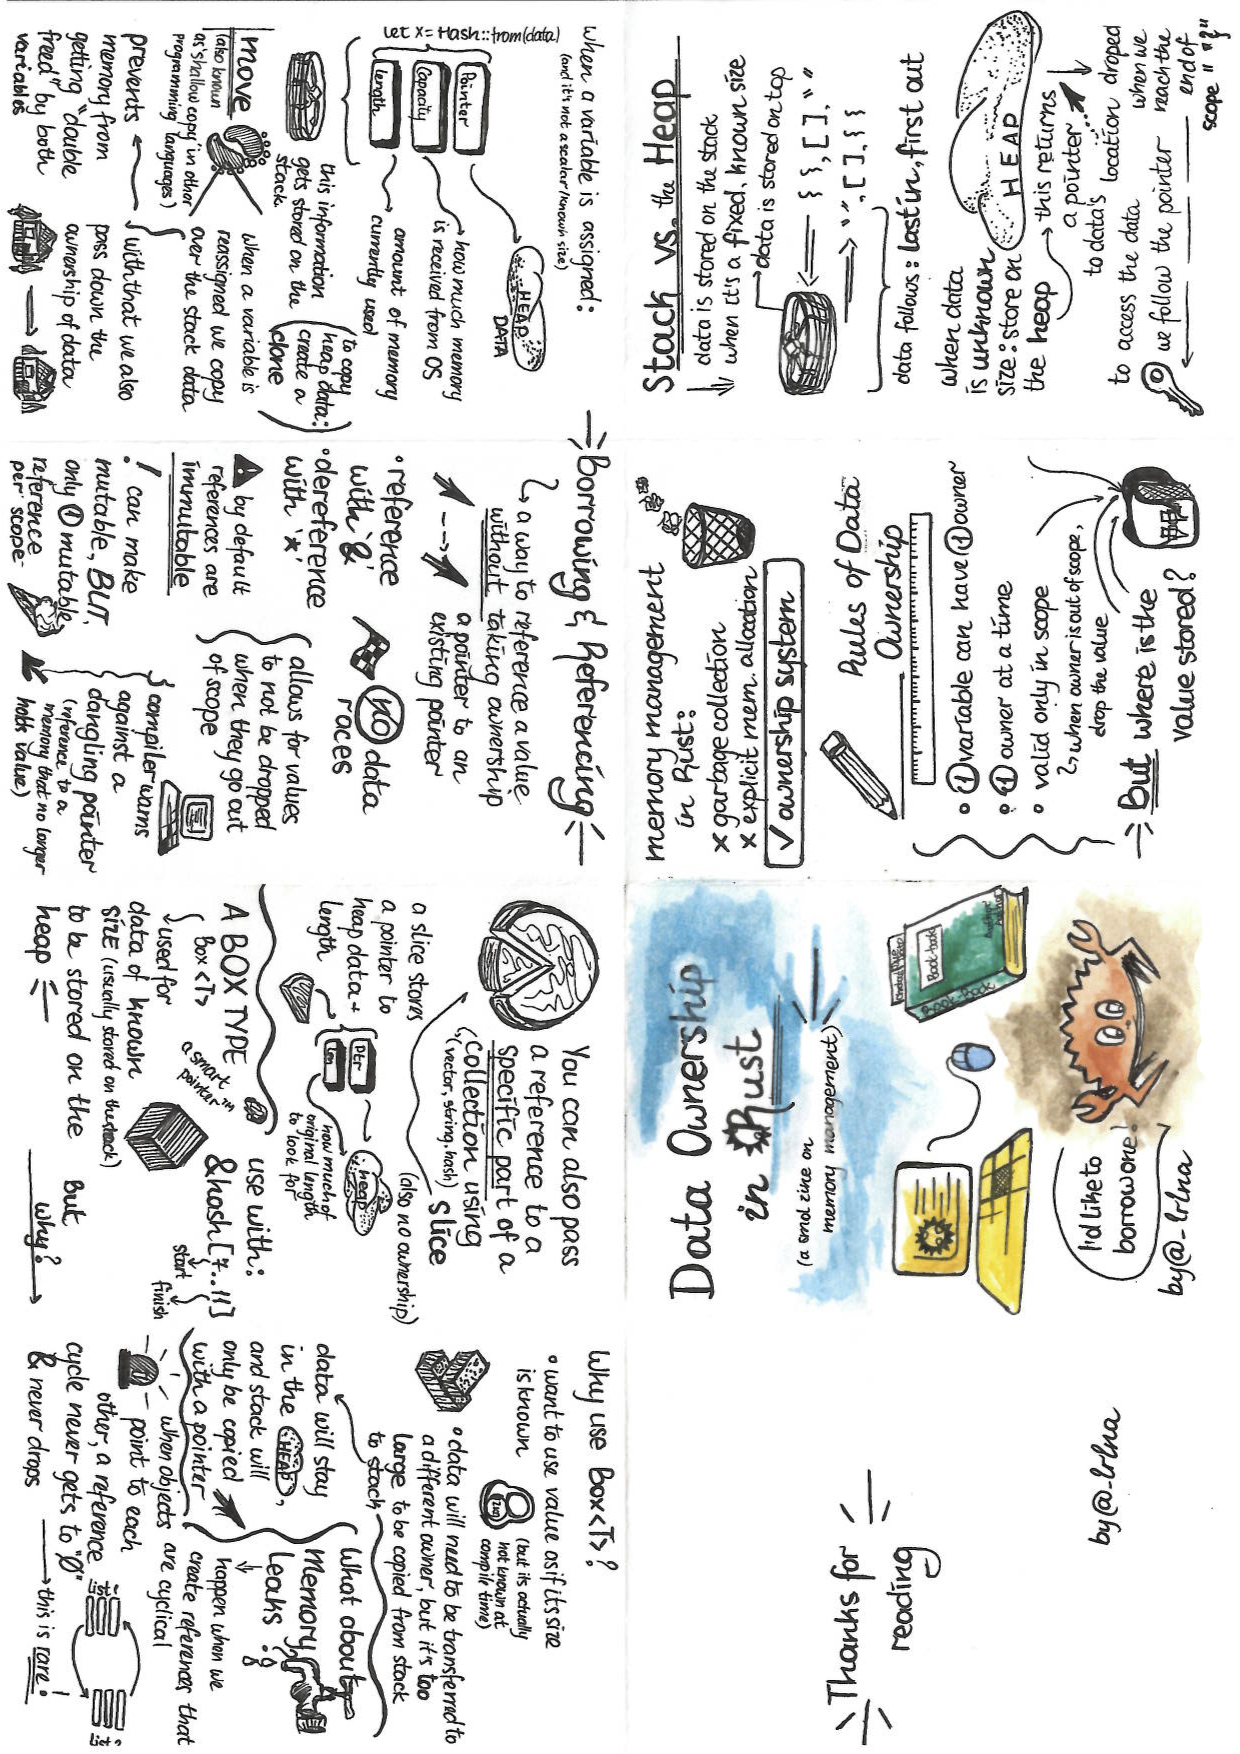 Data Ownership
in Rust
(a smol zine on
memory management)
Book-book
Book-Book
I'd like to
borrow one!
by @_lrlna
memory management
in Rust:
x garbage collection
x explicit mem. allocation
✓ ownership system
Rules of Data
Ownership
• ① variable can have ① owner
• ① owner at a time
• valid only in scope
↳ when owner is out of scope,
drop the value
But where is the
value stored?
Stack vs. the Heap
data is stored on the stack
when it's a fixed, known size
data is stored on top
{ }, [ ], " "
" ", [ ], { }
data follows: last in, first out
when data
is unknown
size: store on
the heap
HEAP
this returns
a pointer
to data's location
to access the data
we follow the pointer
droped
when we
reach the
end of
scope "}"
when a variable is assigned:
(and it's not a scalar/known size)
let x = Hash::from(data)
Pointer
Capacity
Length
HEAP
DATA
how much memory
is received from OS
amount of memory
currently used
this information
gets stored on the
stack.
(to copy
heap data:
create a
clone
move
(also known
as 'shallow copy' in other
programming languages)
when a variable is
reassigned we copy
over the stack data
prevents
memory from
getting "double
freed" by both
variables
with that we also
pass down the
ownership of data
Borrowing & Referencing
a way to reference a value
without taking ownership
a pointer to an
existing pointer
• reference
with '&'
• dereference
with '*'
no data
races
by default
references are
immutable
allows for values
to not be dropped
when they go out
of scope
• I can make
mutable, BUT,
only ① mutable
reference
per scope
compiler warns
against a
dangling pointer
(inference to a
memory that no longer
holds value)
You can also pass
a reference to a
specific part of a
collection using
(vector, string, hash) slice
(also no ownership)
a slice stores
a pointer to
heap data +
length
ptr
len
heap
how much of
original length
to look for
use with:
&hash[7..11]
start
finish
A BOX TYPE
Box<T>
a smart
pointer™
used for
data of known
size (usually stored on the stack)
to be stored on the
heap
But
why?
Why use Box<T>?
• want to use value as if its size
is known
(but its actually
not known at
compile time)
• data will need to be transferred to
a different owner, but it's too
large to be copied from stack
to stack
data will stay
in the HEAP,
and stack will
only be copied
with a pointer
What about
Memory
Leaks?
happen when we
create references that
are cyclical
when objects
point to each
other, a reference
cycle never gets to "0"
& never drops
this is rare!
Thanks for
reading
by @_lrlna